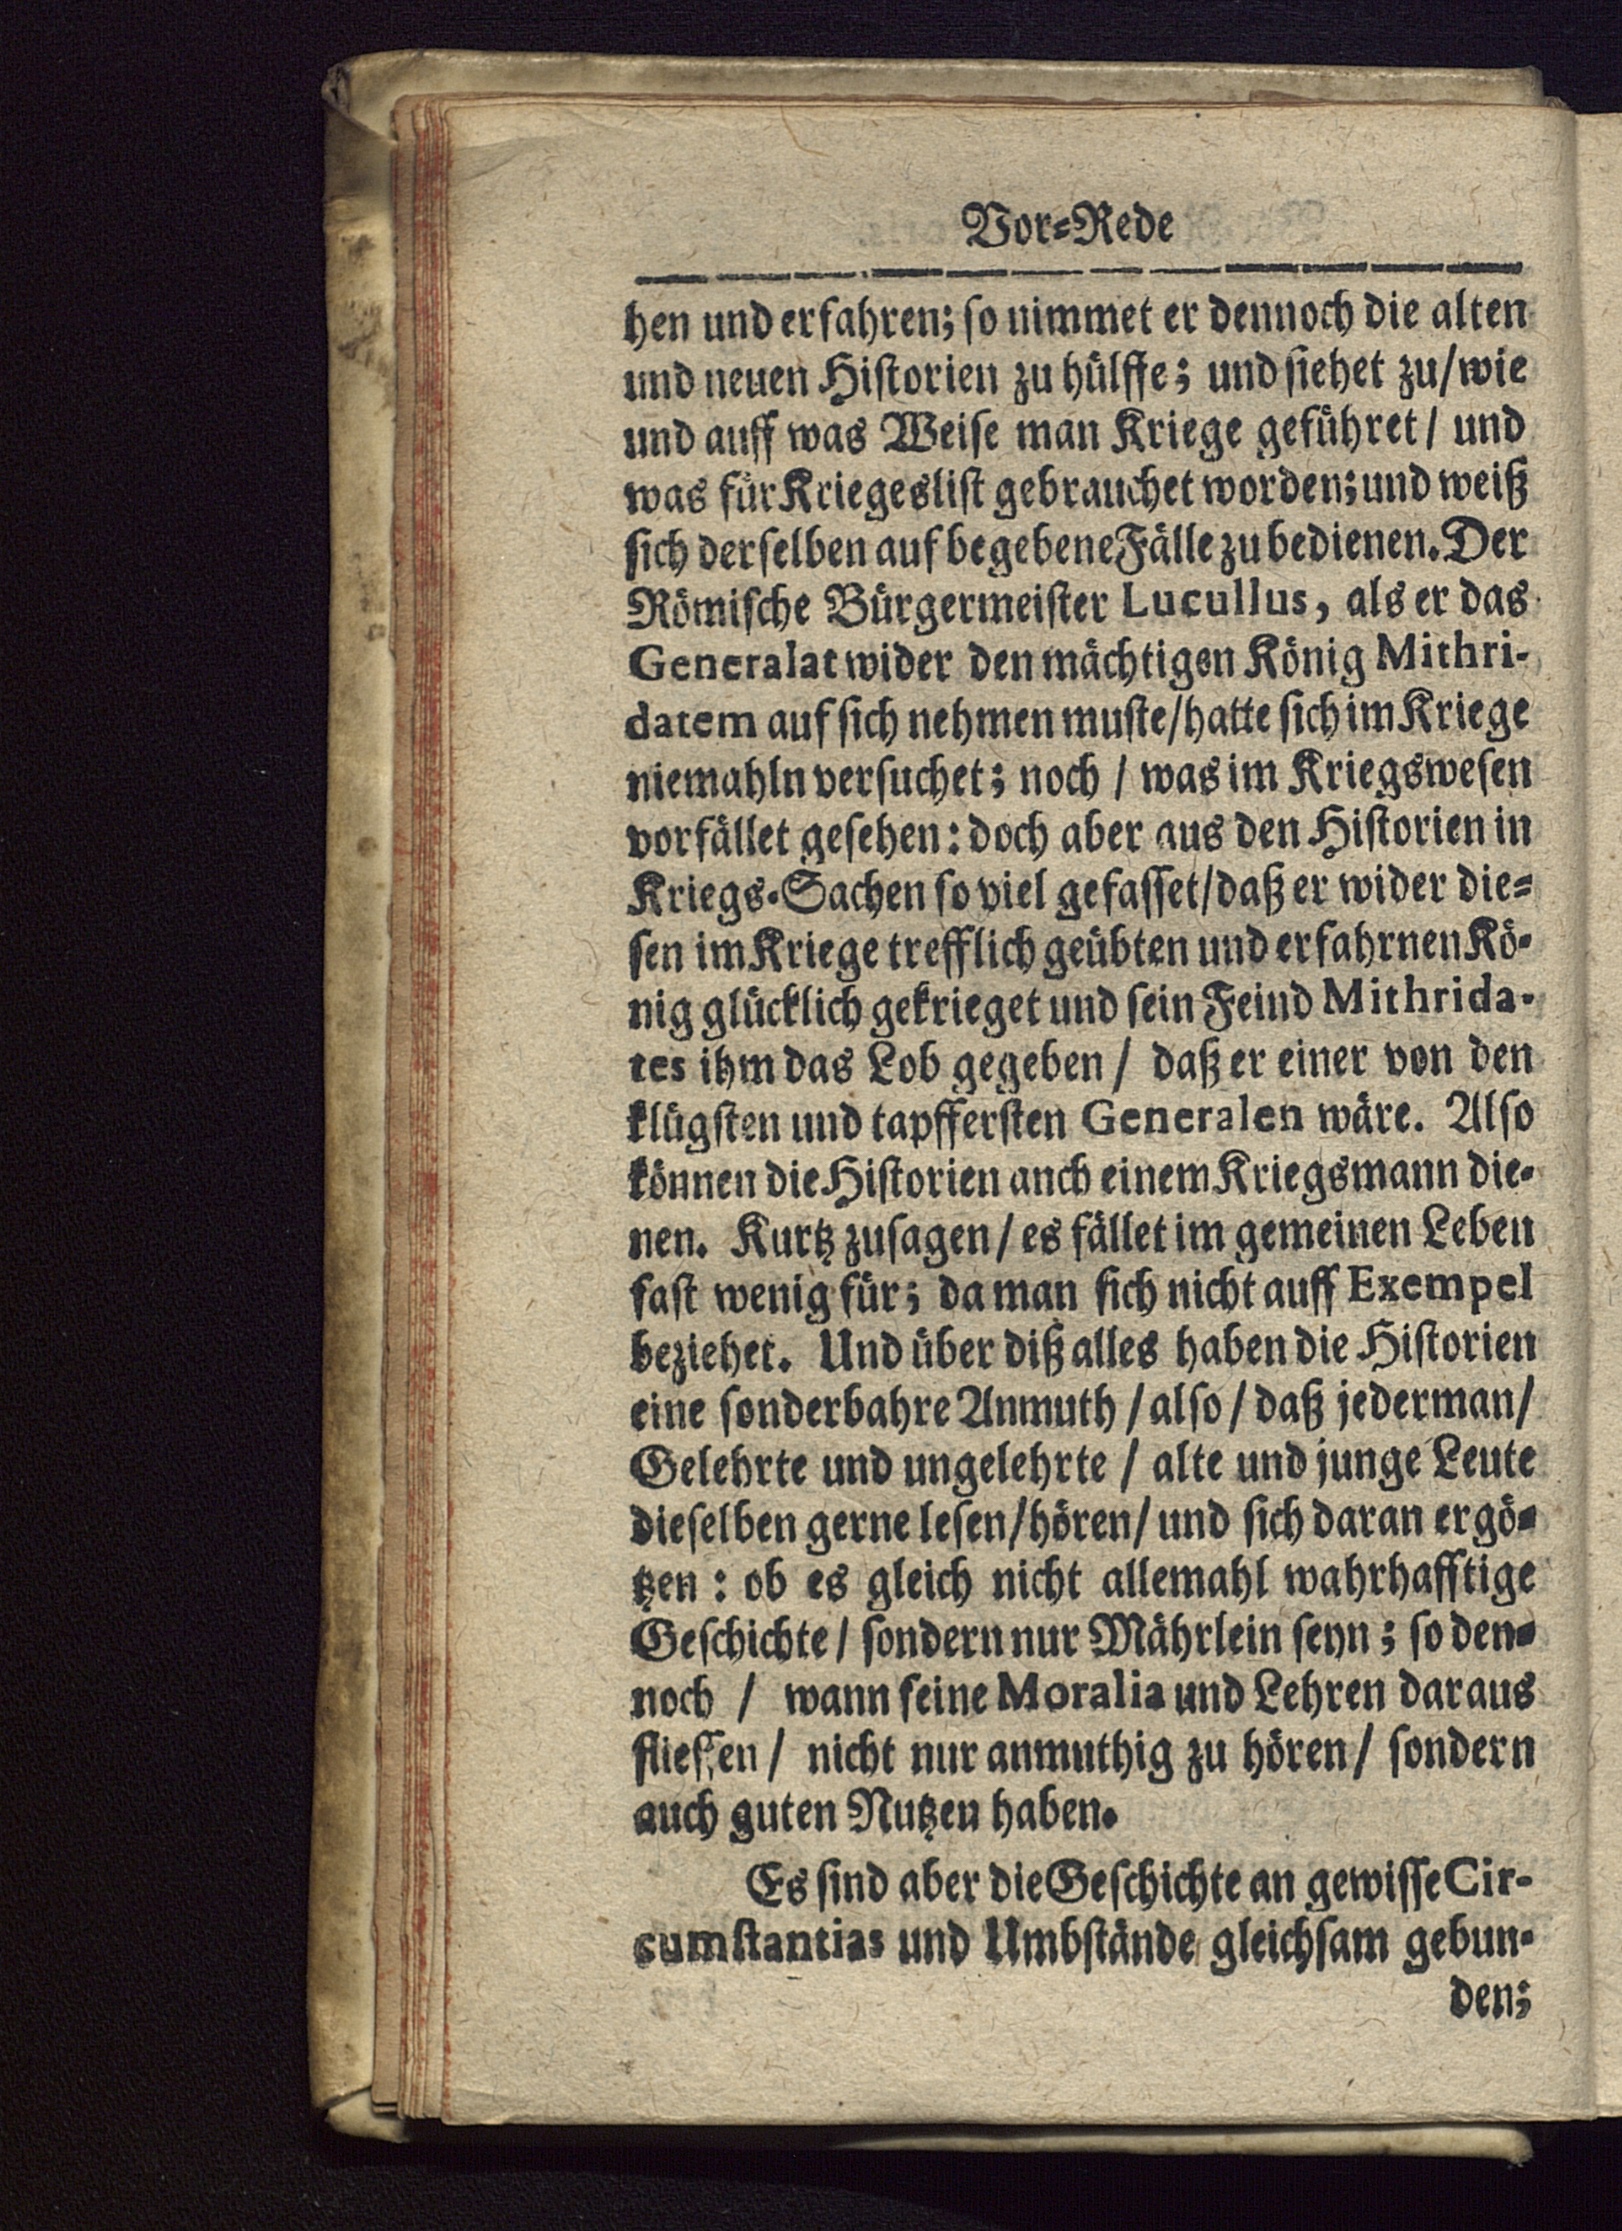 Vor-Rede
hen und erfahren; so nimmet er dennoch die alten
und neuen Historien zu hülffe; und siehet zu/wie
und auff was Weise man Kriege geführet / und
was für Kriegeslist gebrauchet worden; und weiß
sich derselben auf begebene Fälle zu bedienen. Der
Römische Bürgermeister Lucullus, als er das
Generalat wider den mächtigen König Mithri-
datem auf sich nehmen muste/hatte sich im Kriege
niemahln versuchet; noch / was im Kriegswesen
vorfället gesehen: doch aber aus den Historien in
Kriegs-Sachen so viel gefasset/daß er wider die-
sen im Kriege trefflich geübten und erfahrnen Kö-
nig glücklich gekrieget und sein Feind Mithrida-
tes ihm das Lob gegeben / daß er einer von den
klügsten und tapffersten Generalen wäre. Also
können die Historien anch einem Kriegsmann die-
nen. Kurtz zusagen / es fället im gemeinen Leben
fast wenig für; da man sich nicht auff Exempel
beziehet. Und über diß alles haben die Historien
eine sonderbahre Anmuth / also / daß jederman/
Gelehrte und ungelehrte / alte und junge Leute
dieselben gerne lesen/hören/ und sich daran ergö-
tzen : ob es gleich nicht allemahl wahrhafftige
Geschichte / sondern nur Mährlein seyn; so den-
noch / wann feine Moralia und Lehren daraus
fliessen / nicht nur anmuthig zu hören / sondern
auch guten Nutzen haben.
Es sind aber die Geschichte an gewisse Cir-
cumstantias und Umbstände gleichsam gebun-
den;